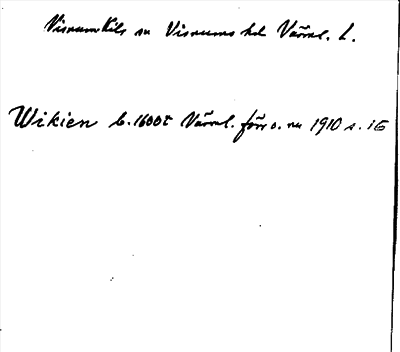 Visnum Kils sn Visnums hd Värml. L.
Wikien b. 1600t Värml. förr o. nu 1910 s. 16